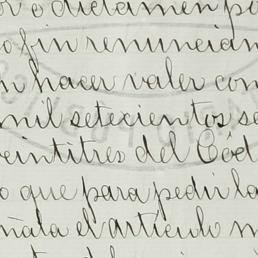 o dictamen p
o fin renuncian
n hacer valer con
mil setecientos se
veintitres del Cód
o que para pedir la
ñala el artículo m